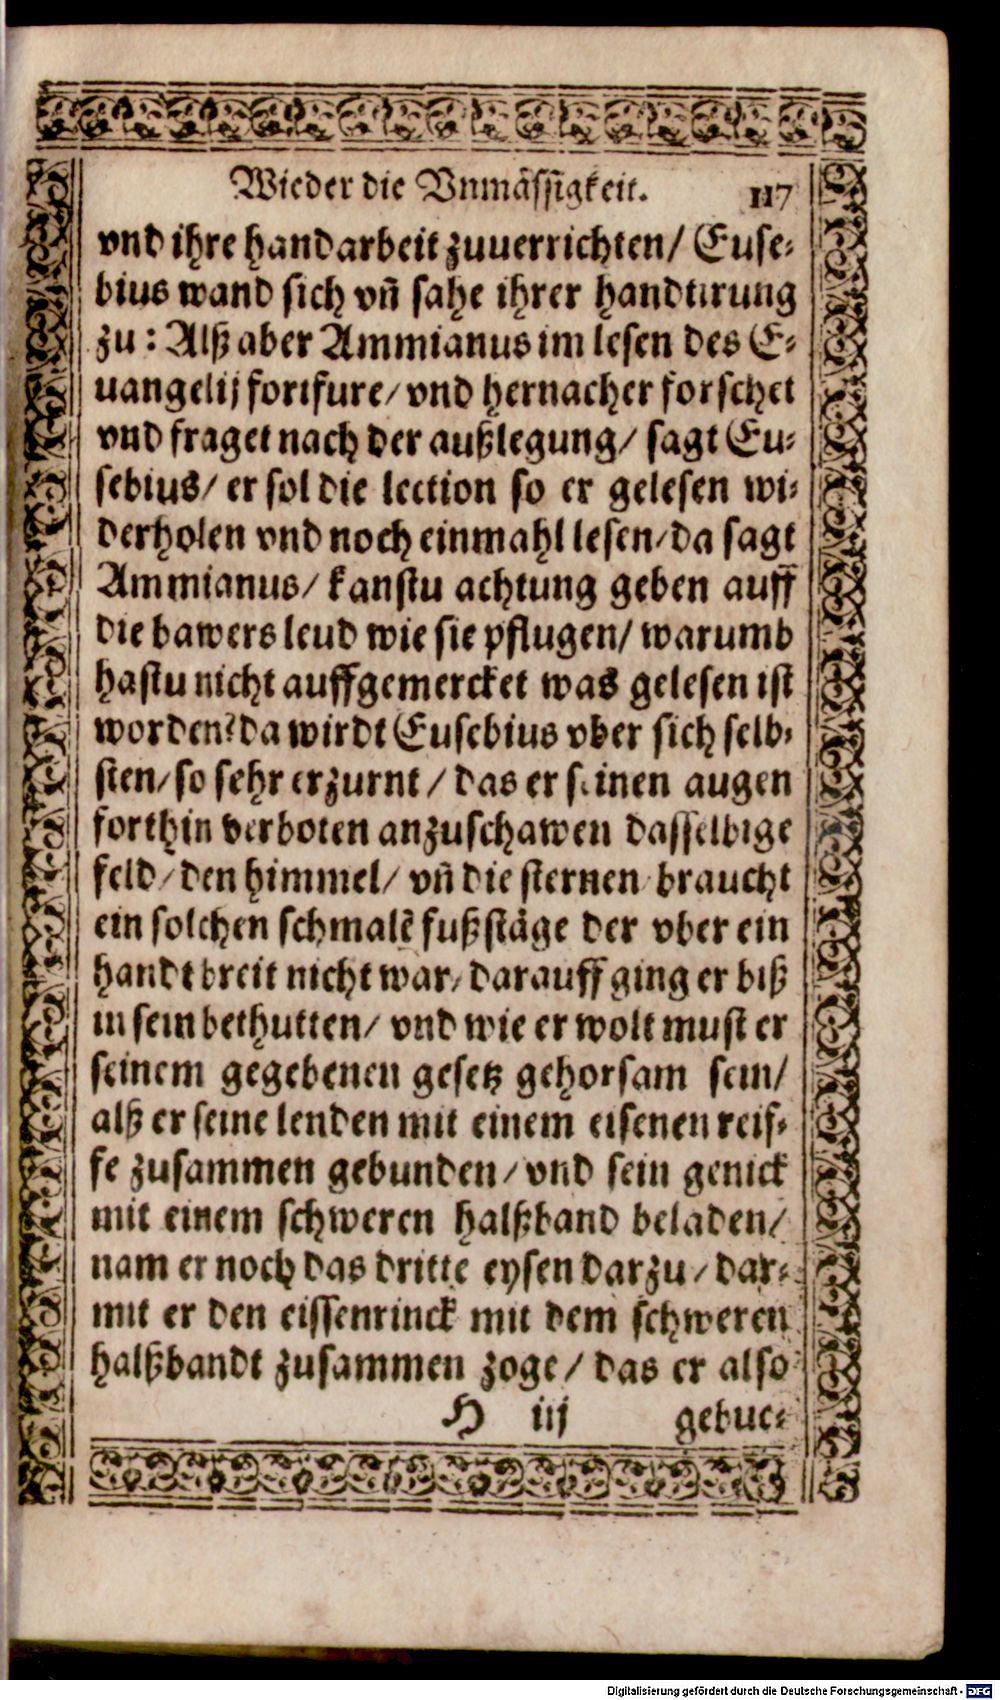 Wieder die Vnmässigkeit. 117
vnd ihre handarbeit zuuerrichten/ Euse-
bius wand sich vñ sahe ihrer handtirung
zu: Alß aber Ammianus im lesen des E-
uangelij fortfure/ vnd hernacher forschet
vnd fraget nach der außlegung/ sagt Eu-
sebius/ er sol die lection so er gelesen wi-
derholen vnd noch einmahl lesen/ da sagt
Ammianus/ kanstu achtung geben auff
die bawers leud wie sie pflugen/ warumb
hastu nicht auffgemercket was gelesen ist
worden? da wirdt Eusebius vber sich selb-
sten/ so sehr erzurnt/ das er seinen augen
forthin verboten anzuschawen dasselbige
feld/ den himmel/ vñ die sternen braucht
ein solchen schmalẽ fußstäge der vber ein
handt breit nicht war/ darauff ging er biß
in sein bethutten/ vnd wie er wolt must er
seinem gegebenen gesetz gehorsam sein/
alß er seine lenden mit einem eisenen reif-
fe zusammen gebunden/ vnd sein genick
mit einem schweren halßband beladen/
nam er noch das dritte eysen darzu/ dar-
mit er den eissenrinck mit dem schweren
halßbandt zusammen zoge/ das er also
H iij gebuc-
Digitalisierung gefördert durch die Deutsche Forschungsgemeinschaft - DFG